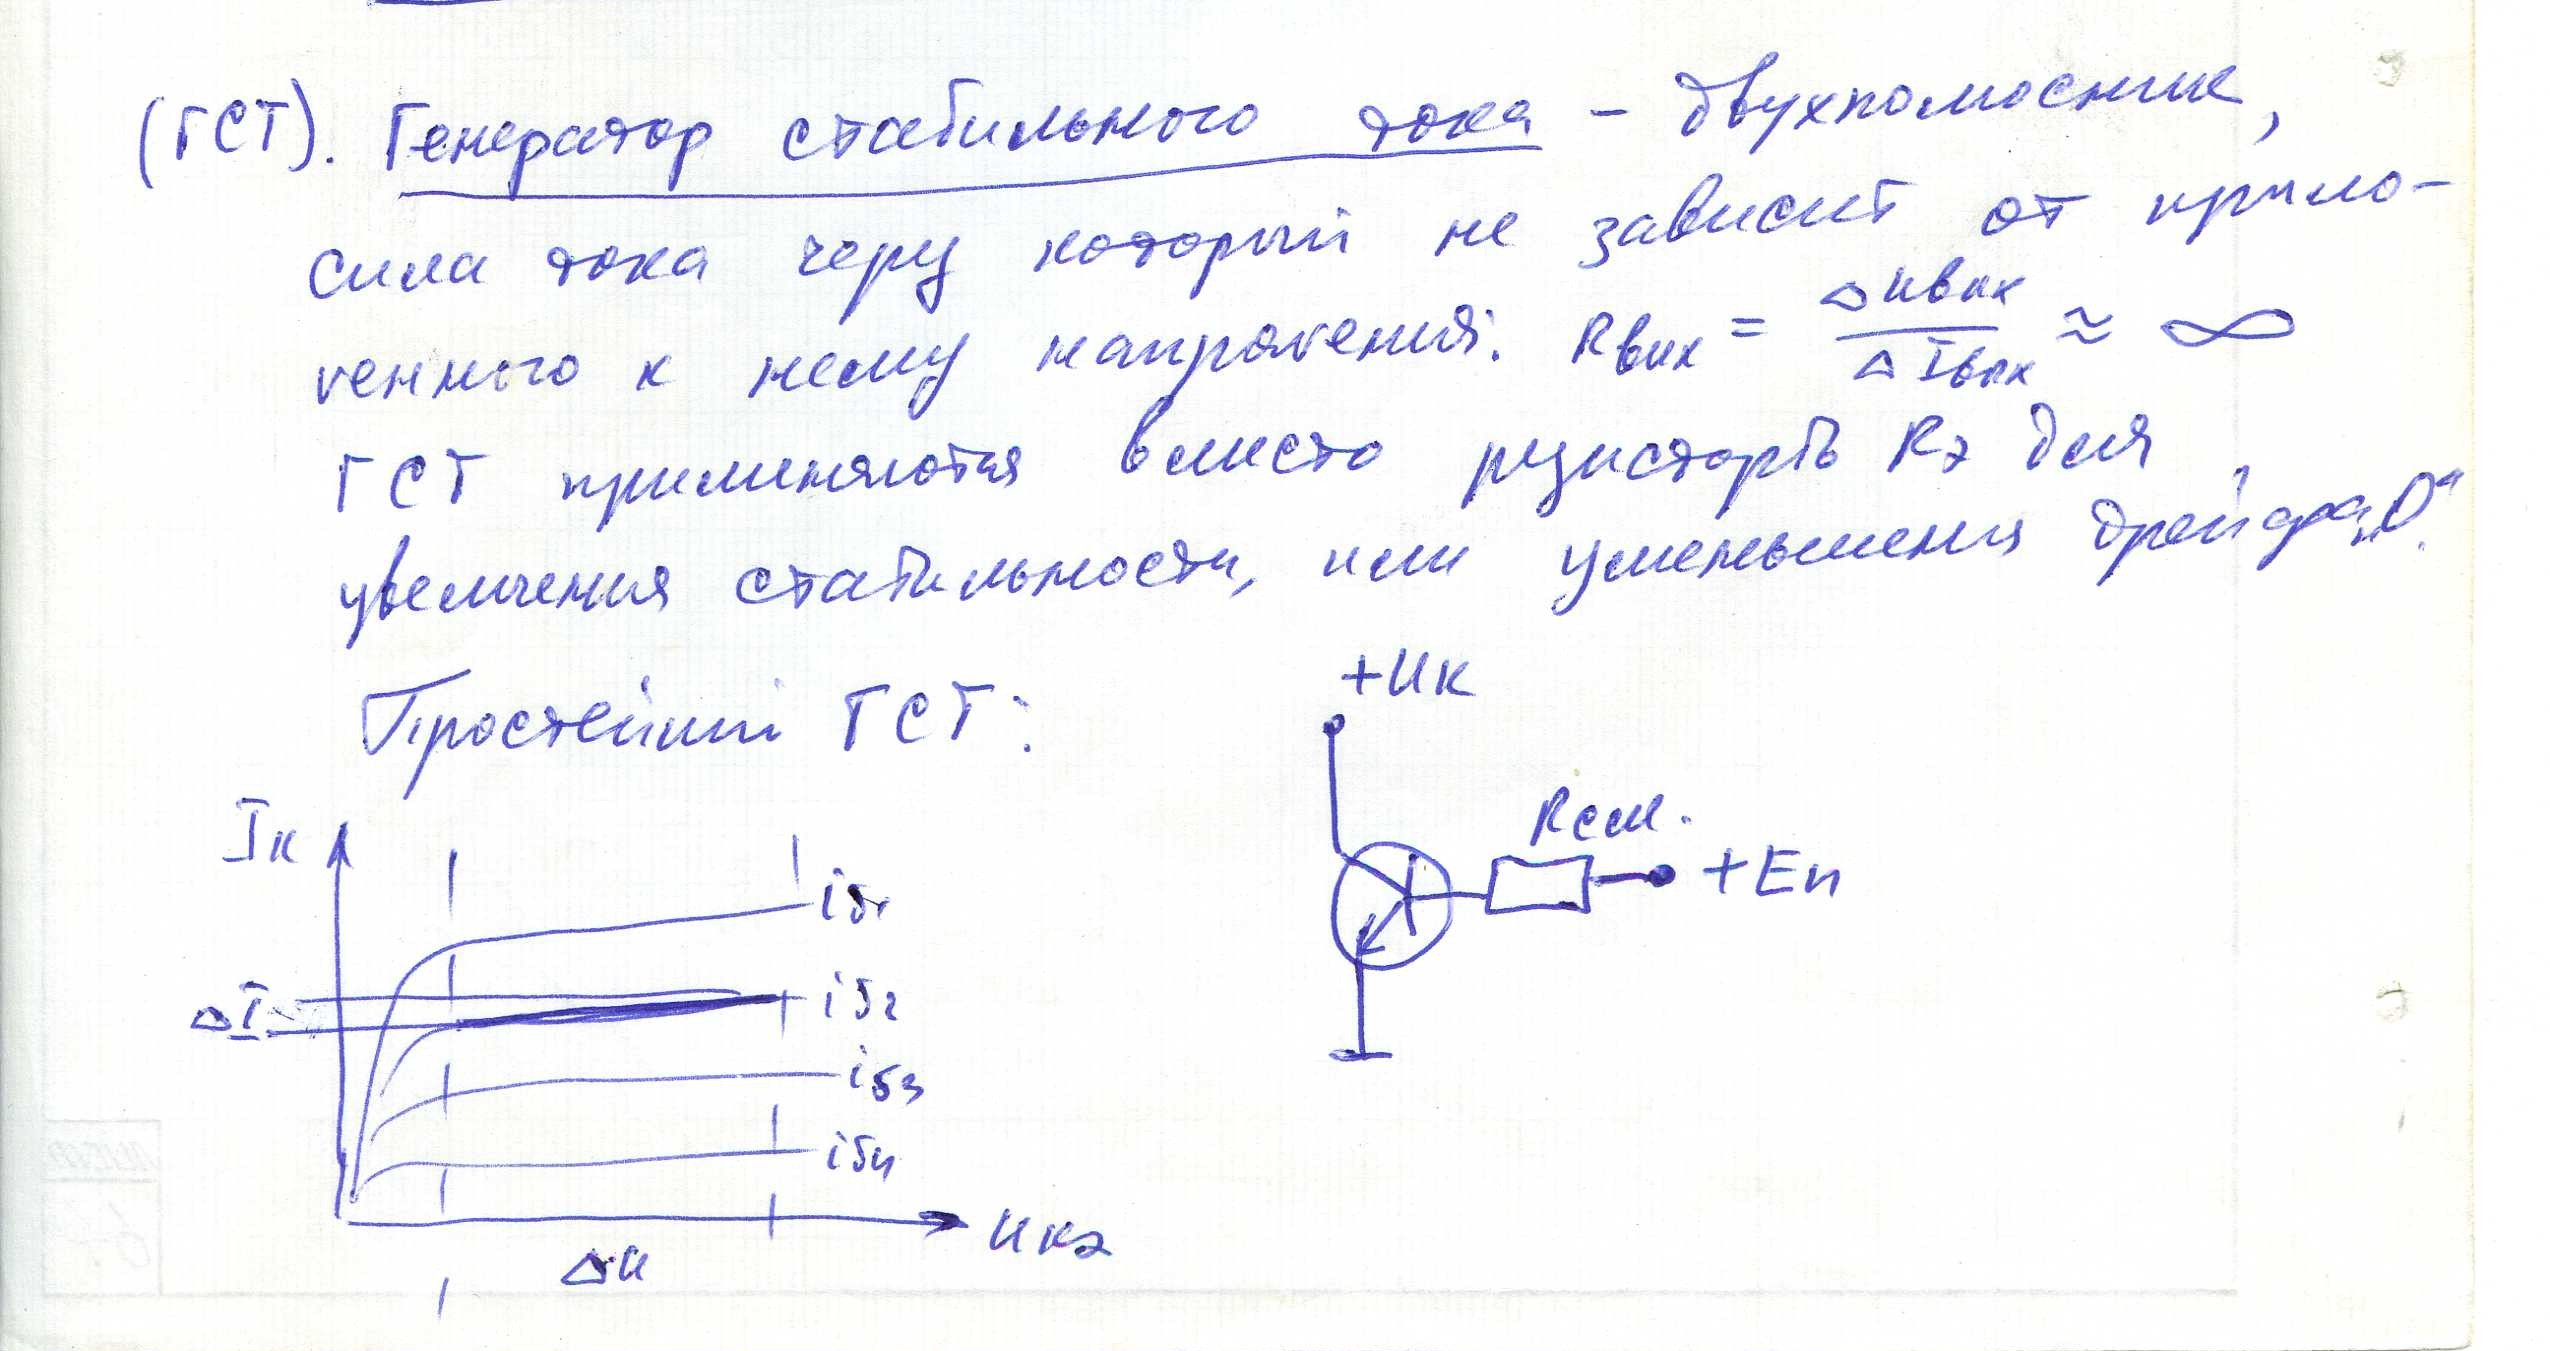 (ГСТ). Генератор стабильного тока – двухполюсник,
сила тока через который не зависит от прило-
женного к нему напряжения. Rвых = ΔUвых / ΔIвых ≈ ∞
ГСТ применяются вместо резисторов Rэ для
увеличения стабильности, или уменьшения дрейфа „0“.
Простейший ГСТ:
+Uк
Rсм.
+Eп
Iк
iб1
ΔI
iб2
iб3
iб4
Uкэ
ΔU